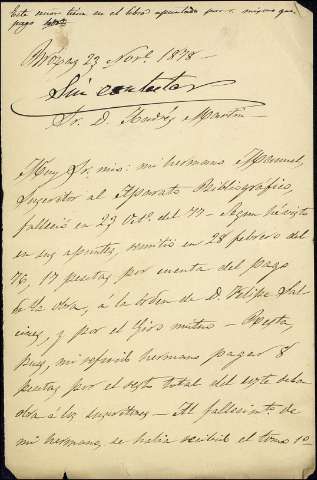 Este señor tiene en el libro apuntado por sí mismo que
pago
23 Nov.e 1878 -
Sin contestar
Sr. D. Andrés Martin -
Muy Sr. mio: mi hermano Manuel,
Suscritor al Aparato Bibliográfico,
falleció en 29 Oct.e del 77 - Segun he visto
en sus apuntes, remitió en 28 febrero del
76, 17 pesetas por cuenta del pago
de la obra, á la órden de D. Felipe
y por el Giro mútuo - Resta,
pues, mi referido hermano pagar 8
pesetas por el resto total del coste de la
obra á los suscritores - Al fallecimto de
mi hermano, se habia recibido el tomo 1º